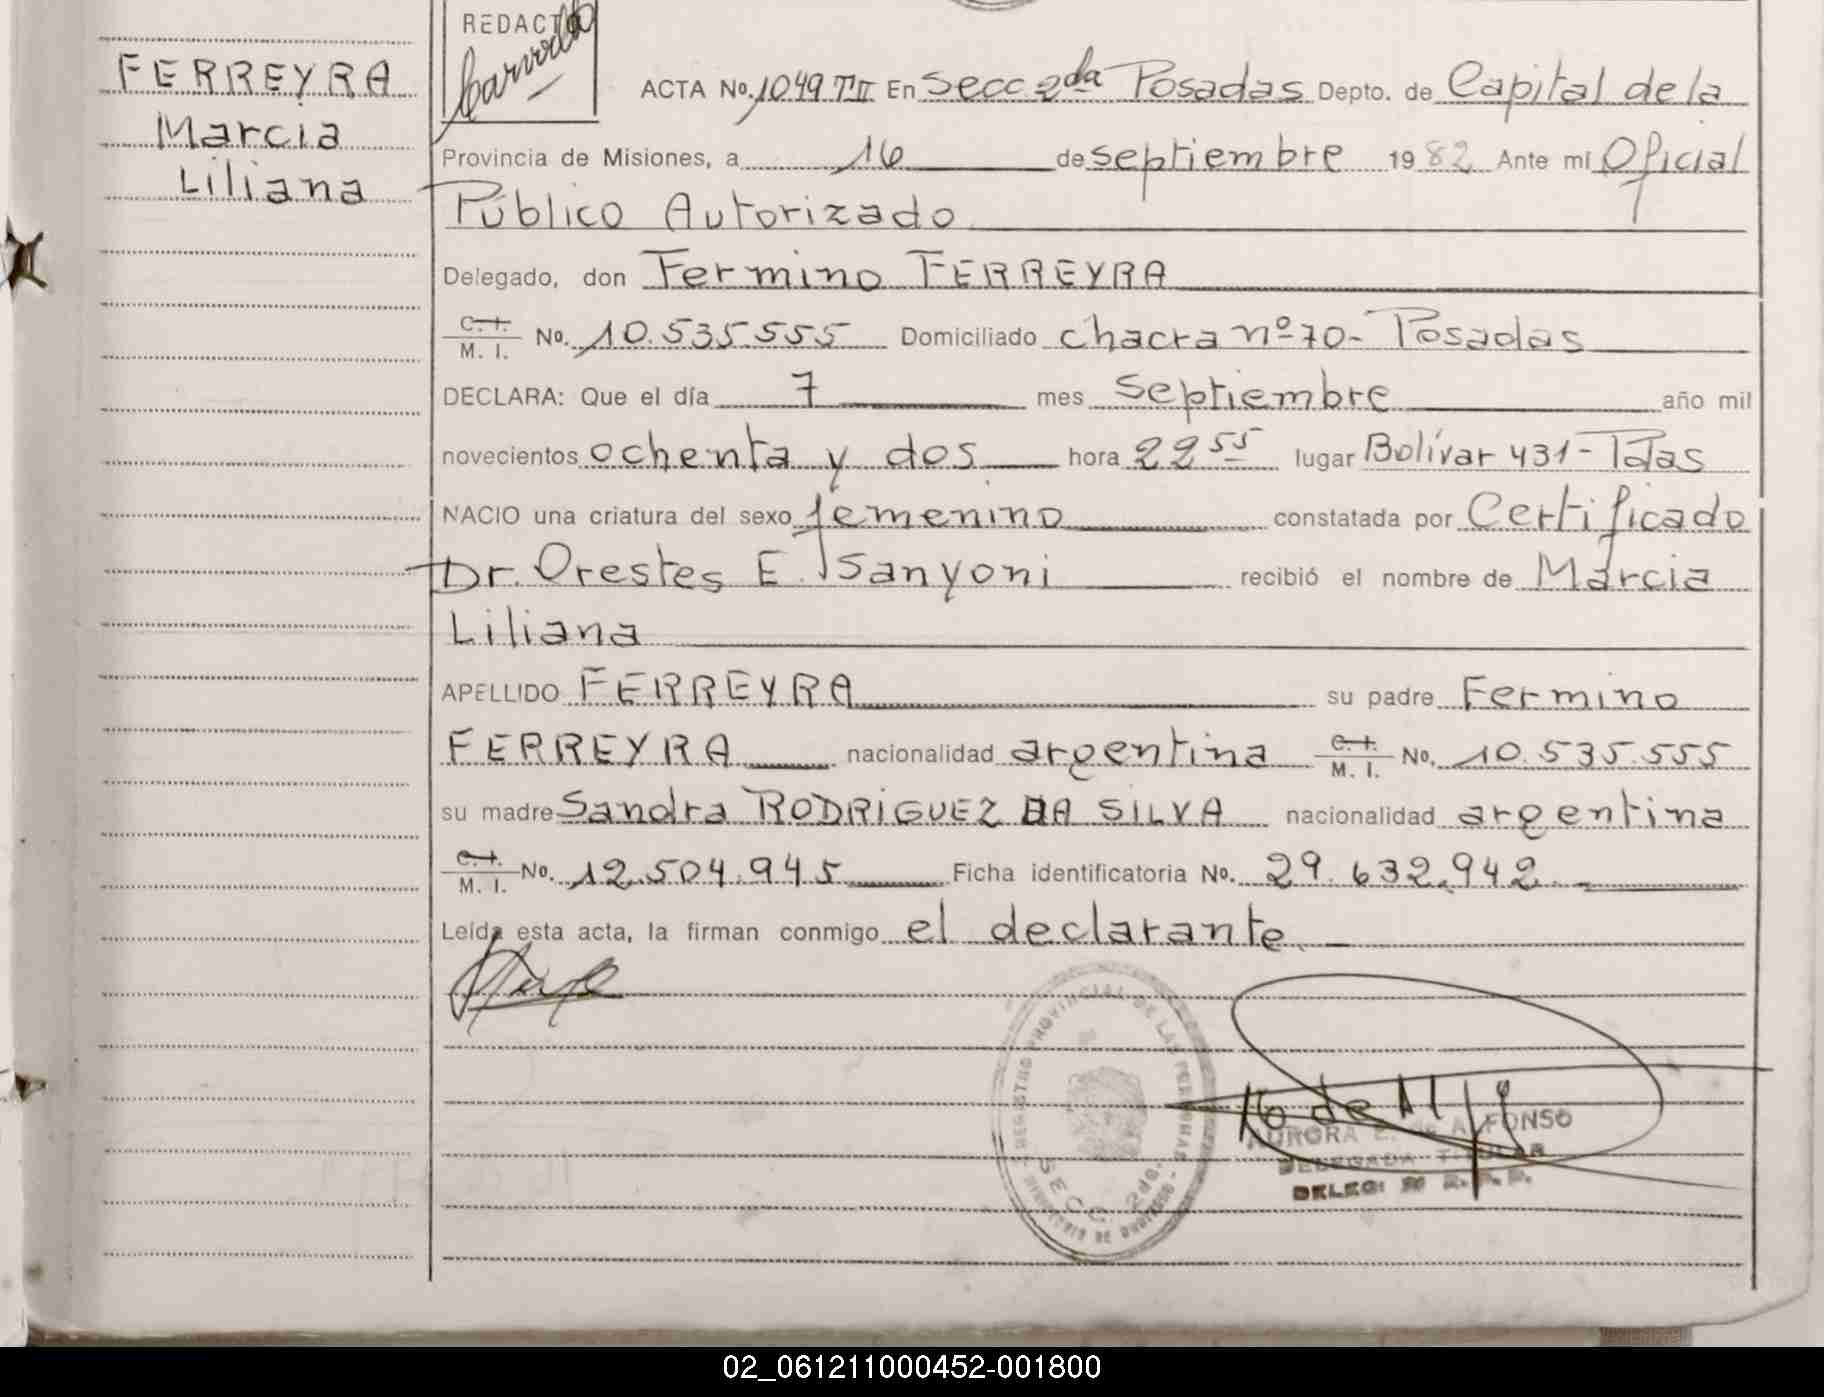 FERREYRA
Marcia
Liliana
REDACTO
ACTA No. 1049 TºII En Secc. 2da Posadas Depto. de Capital de la
Provincia de Misiones, a 16 de septiembre 1982 Ante mi Oficial
Público Autorizado
Delegado, don Fermino FERREYRA
C. I. M. I. No. 10.535.555 Domiciliado chacra nº 70- Posadas
DECLARA: Que el día 7 mes septiembre año mil
novecientos ochenta y dos hora 22 55 lugar Bolívar 431-Pdas
NACIO una criatura del sexo femenino constatada por Certificado
Dr. Orestes E. Sanyoni recibió el nombre de Marcia
Liliana
APELLIDO FERREYRA su padre Fermino
FERREYRA nacionalidad argentina C. I. M. I. No. 10.535.555
su madre Sandra RODRIGUEZ DA SILVA nacionalidad argentina
C. I. M. I. No. 12.504.945 Ficha identificatoria No. 29.632.942.
Leída esta acta, la firman conmigo el declarante.
REGISTRO PROVINCIAL DE LAS PERSONAS
SECC. 2da.
AURORA E. de ALFONSO
DELEGADA TITULAR
02_061211000452-001800